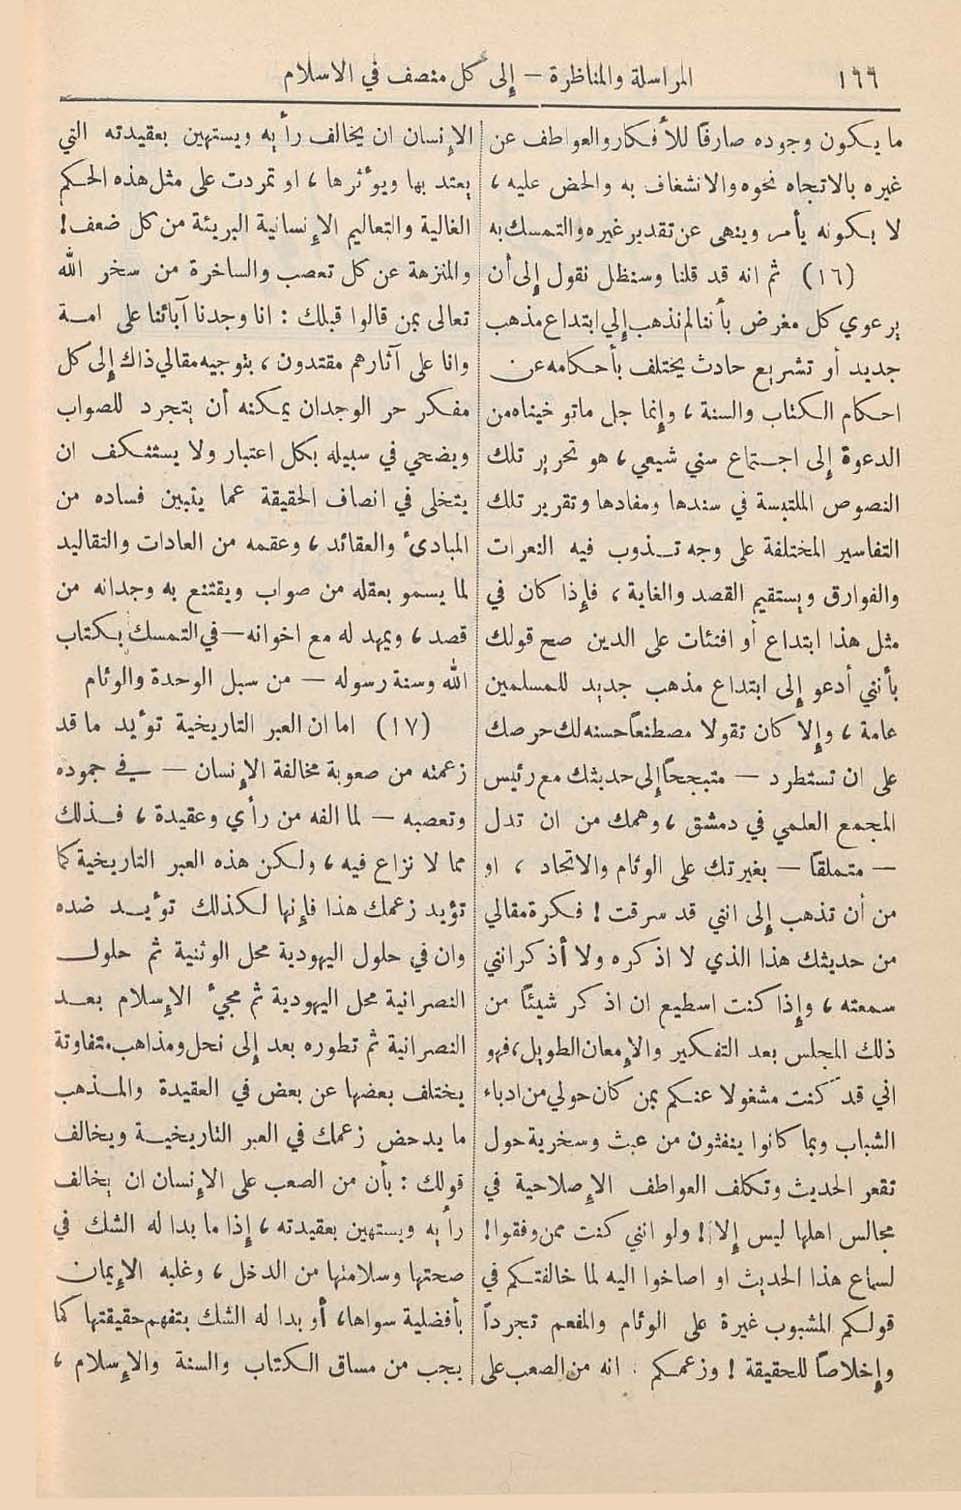 ١٦٦
المراسلة والمناظرة — إلى كل منصف في الاسلام
ما يكون وجوده صارفًا للأفكار والعواطف عن
غيره بالاتجاه نحوه والانشغاف به والحض عليه ،
لا بكونه يأمر وينهى عن تقدير غيره والتمسك به
(١٦) ثم انه قد قلنا وسنظل نقول إلى أن
يرعوي كل مغرض بأننا لم نذهب إلى ابتداع مذهب
جديد أو تشريع حادث يختلف بأحكامه عن
احكام الكتاب والسنة ، وإنما جل ما توخيناه من
الدعوة إلى اجتماع سني شيعي ، هو تحرير تلك
النصوص الملتبسة في سندها ومفادها وتقرير تلك
التفاسير المختلفة على وجه تذوب فيه النعرات
والفوارق ويستقيم القصد والغاية ، فإذا كان في
مثل هذا ابتداع أو افتئات على الدين صح قولك
بأنني أدعو إلى ابتداع مذهب جديد للمسلمين
عامة ، وإلا كان تقولا مصطنعًا حسنه لك حرصك
على ان تستطرد — متبجحًا إلى حديثك مع رئيس
المجمع العلمي في دمشق ، وهمك من ان تدل
— متملقًا — بغيرتك على الوئام والاتحاد ، او
من أن تذهب إلى انني قد سرقت ! فكرة مقالي
من حديثك هذا الذي لا اذكره ولا أذكر انني
سمعته ، وإذا كنت اسطيع ان اذكر شيئًا من
ذلك المجلس بعد التفكير والإمعان الطويل ، فهو
اني قد كنت مشغولا عنكم بمن كان حولي من ادباء
الشباب وبما كانوا ينفثون من عبث وسخرية حول
تقعر الحديث وتكلف العواطف الإصلاحية في
مجالس اهلها ليس إلا ! ولو انني كنت ممن وفقوا !
لسماع هذا الحديث او اصاخوا اليه لما خالفتكم في
قولكم المشبوب غيرة على الوئام والمفعم تجردًا
وإخلاصًا للحقيقة ! وزعمكم . انه من الصعب على
الإنسان ان يخالف رأيه ويستهين بعقيدته التي
يعتد بها ويؤثرها ، او تمردت على مثل هذه الحكم
الغالية والتعاليم الإنسانية البريئة من كل ضعف !
والمنزهة عن كل تعصب والساخرة من سخر الله
تعالى بمن قالوا قبلك : انا وجدنا آبائنا على امة
وانا على آثارهم مقتدون ، بتوجيه مقالي ذاك إلى كل
مفكر حر الوجدان يمكنه أن يتجرد للصواب
ويضحي في سبيله بكل اعتبار ولا يستنكف ان
يتخلى في انصاف الحقيقة عما يتبين فساده من
المبادئ والعقائد ، وعقمه من العادات والتقاليد
لما يسمو بعقله من صواب ويقتنع به وجدانه من
قصد ، ويمهد له مع اخوانه — في التمسك بكتاب
الله وسنة رسوله — من سبل الوحدة والوئام
(١٧) اما ان العبر التاريخية تؤيد ما قد
زعمته من صعوبة مخالفة الإنسان — في جموده
وتعصبه — لما الفه من رأي وعقيدة ، فذلك
مما لا نزاع فيه ، ولكن هذه العبر التاريخية كما
تؤيد زعمك هذا فإنها لكذلك تؤيد ضده
وان في حلول اليهودية محل الوثنية ثم حلول
النصرانية محل اليهودية ثم مجيء الإسلام بعد
النصرانية ثم تطوره بعد إلى نحل ومذاهب متفاوتة
يختلف بعضها عن بعض في العقيدة والمذهب
ما يدحض زعمك في العبر التاريخية ويخالف
قولك : بأن من الصعب على الإنسان ان يخالف
رأيه ويستهين بعقيدته ، إذا ما بدا له الشك في
صحتها وسلامتها من الدخل ، وغلبه الإيمان
بأفضلية سواها ، أو بدا له الشك بتفهم حقيقتها كما
يجب من مساق الكتاب والسنة والإسلام ،